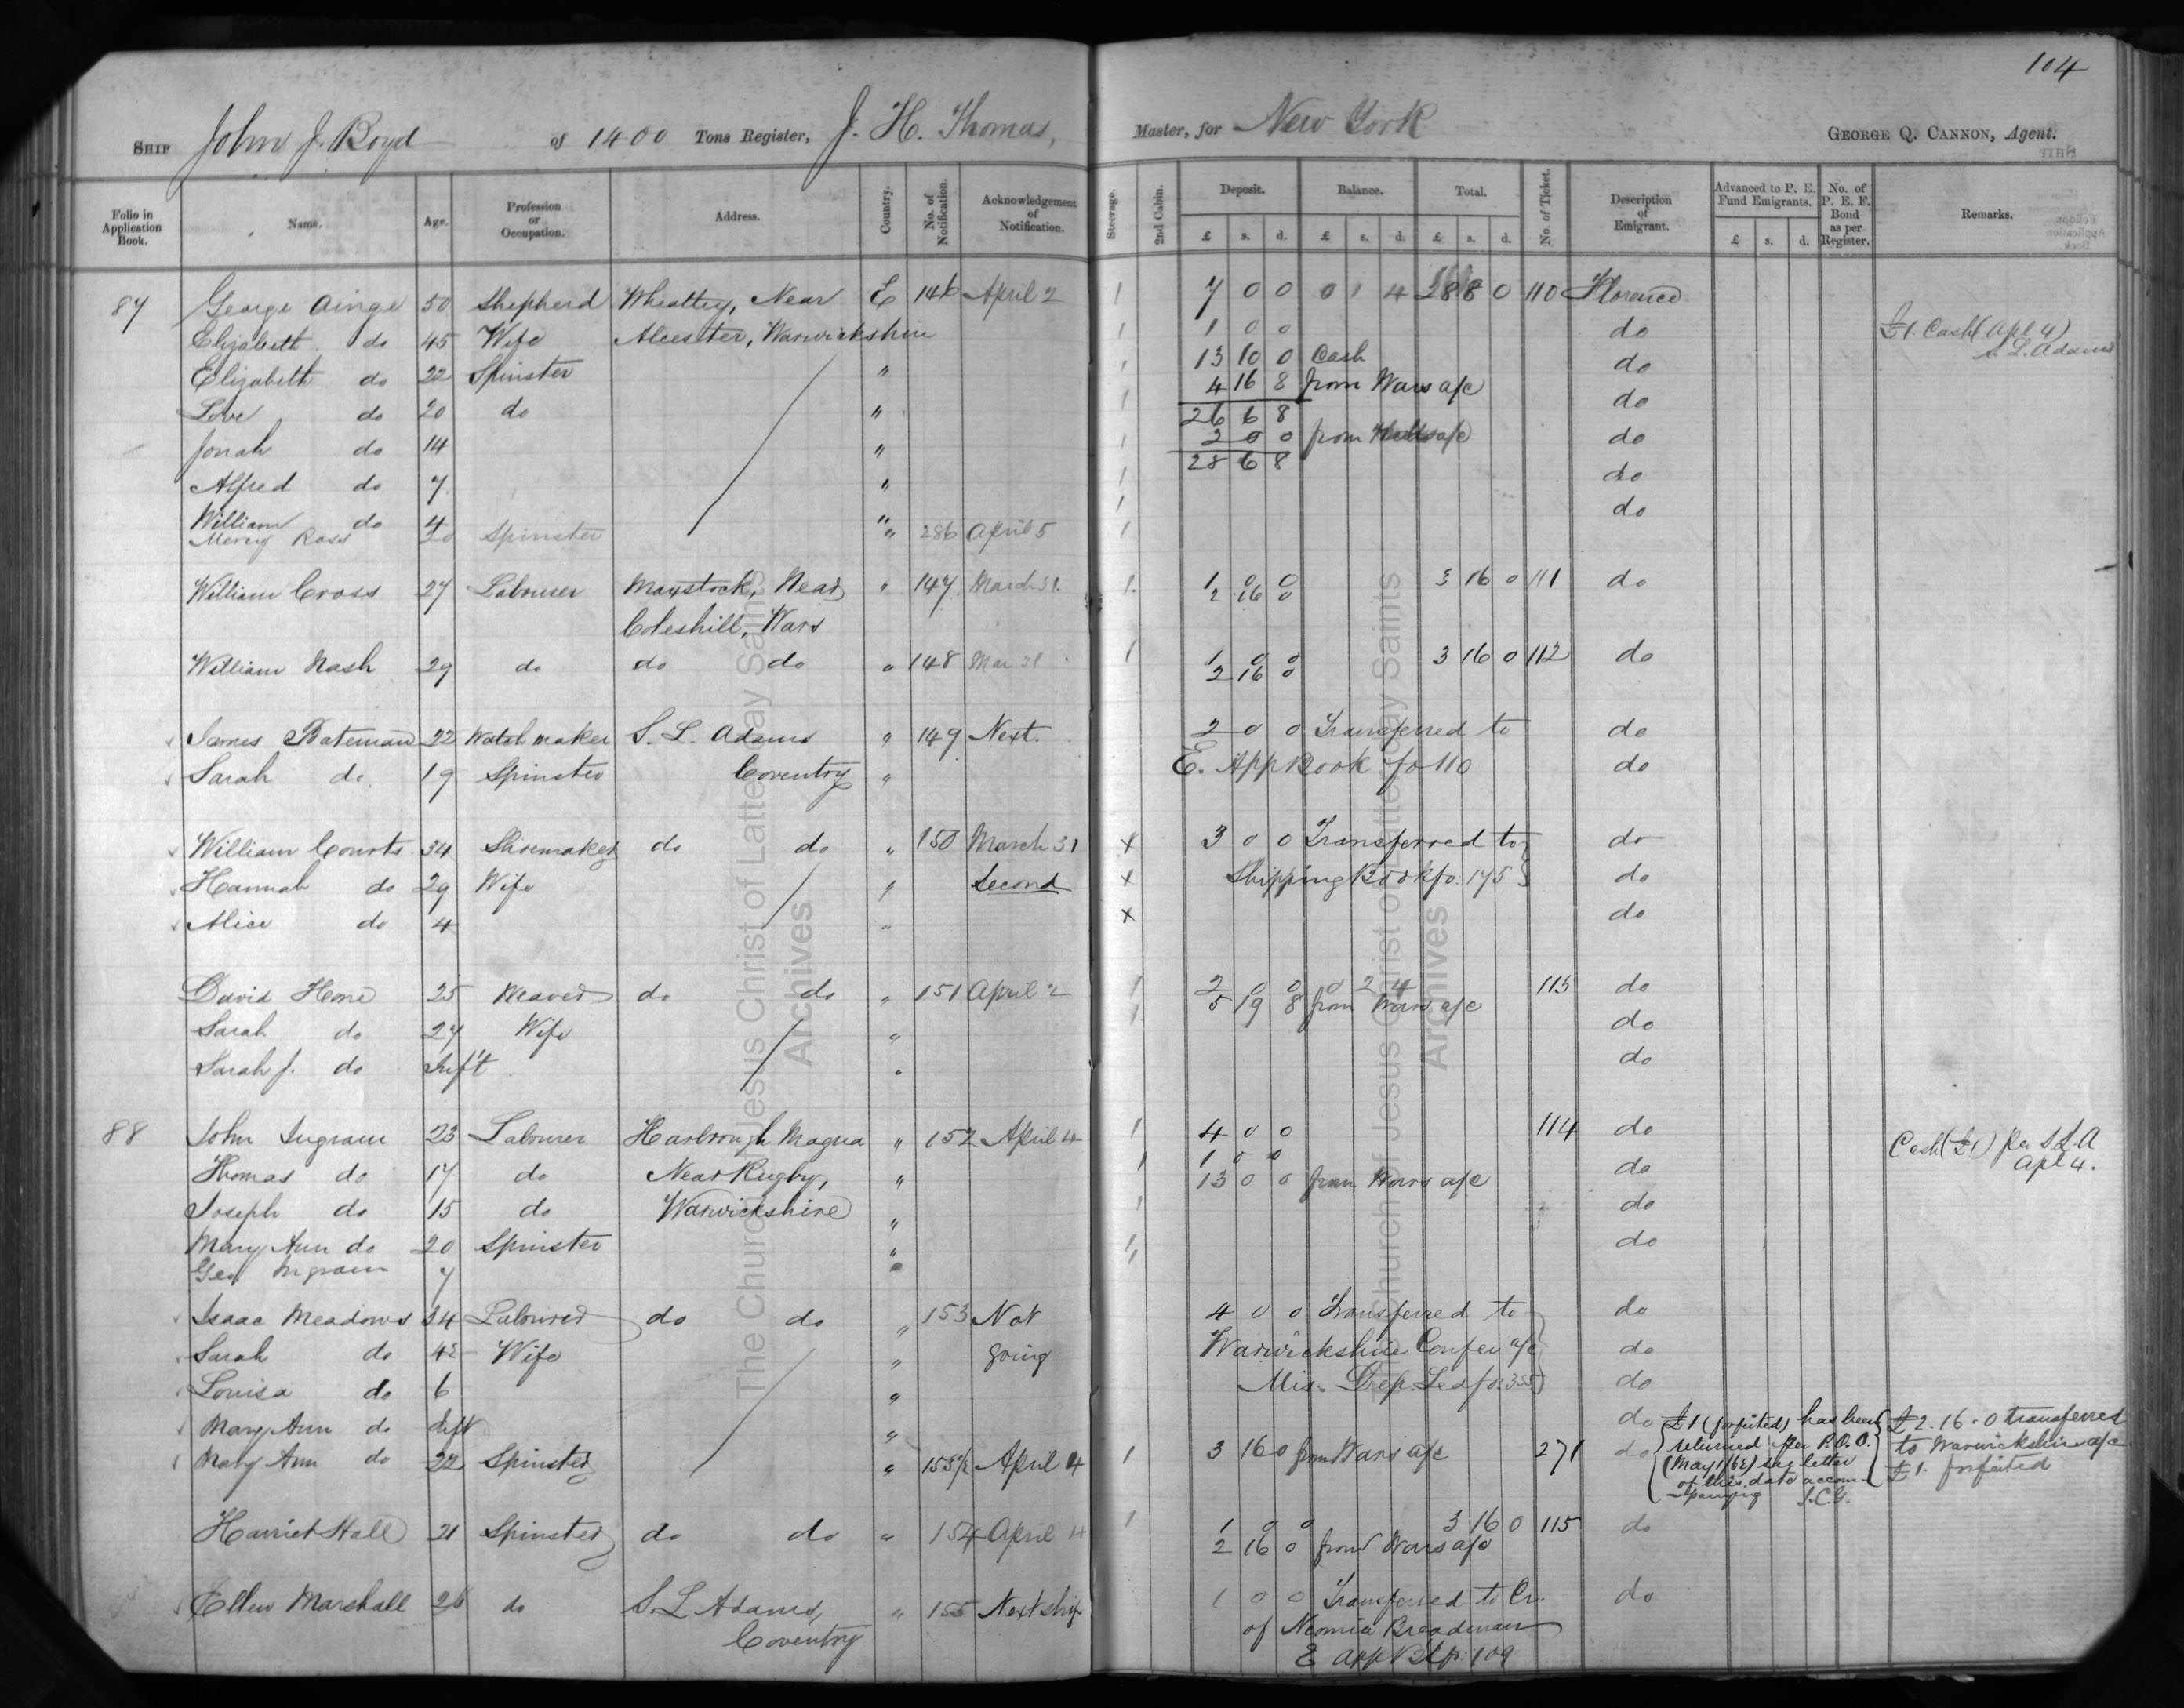 104
SHIP John J. Boyd of 1400 Tons Register, J. H. Thomas, Master, for New York GEORGE Q. CANNON, Agent.
Folio in Application Book. Name. Age. Profession or Occupation. Address. Country. No. of Notification. Acknowledgement of Notification. Steerage. 2nd Cabin. Deposit. £ s. d. Balance. £ s. d. Total. £ s. d. No. of Ticket. Description of Emigrant. Advanced to P. E. Fund Emigrants. £ s. d. No. of P. E. F. Bond as per Register. Remarks.
87 George Ainge 50 Shepherd Wheatley, Near E 146 April 2 1 7 0 0 0 1 4 28 8 0 110 Florence
Elizabeth do 45 Wife Alcester, Warwickshire 1 1 0 0 do £1. Cash (Apl 4)
S. L. Adams
Elizabeth do 22 Spinster " 1 13 10 0 Cash do
4 16 8 from Wars a/c
Love do 20 do " 1 26 6 8 do
Jonah do 14 " 1 2 0 0 from a/c do
28 6 8
Alfred do 7 " 1 do
William do 4 " 1 do
Mercy Ross 20 Spinster " 286 April 5 1
William Cross 27 Labourer Maxstock, Near " 147 March 31. 1 1 0 0 3 16 0 111 do
2 16 0
Coleshill, Wars
William Nash 29 do do do " 148 Mar 31 1 1 0 0 3 16 0 112 do
2 16 0
James Bateman 22 Watch maker S. L. Adams " 149 Next. 2 0 0 Transferred to do
Sarah do 19 Spinster Coventry " E. App Book fo 110 do
William Courts 34 Shoemaker do do " 150 March 31 x 3 0 0 Transferred to do
Hannah do 29 Wife " Second x Shipping Book fo. 175 do
Alice do 4 " x do
David Hone 25 Weaver do do " 151 April 2 1 2 0 0 0 2 4 113 do
5 19 8 from Wars a/c
Sarah do 27 Wife " 1 do
Sarah J. do Inf't " do
88 John Ingram 23 Labourer Harbrough Magna " 152 April 4 1 4 0 0 114 do Cash (£1) per S L A
Apl 4.
Thomas do 17 do Near Rugby, " 1 1 0 0 do
13 0 0 from Wars a/c
Joseph do 15 do Warwickshire " 1 do
Mary Ann do 20 Spinster " 1 do
Geo. Ingram 7 " 1
Isaac Meadows 34 Labourer do do " 153 Not 4 0 0 Transferred to do
Sarah do 42 Wife " going Warwickshire Confer a/c do
Louisa do 6 " Mis. Dep. Led fo. 355 do
Mary Ann do Inft " do £1 (forfeited) has been £2. 16. 0 transferred
Mary Ann do 22 Spinster " 153½ April 4 1 3 16 0 from Wars a/c 271 do returned per P.O.O. to Warwickshire a/c
(May 1/62) see letter £1. forfeited
of this date accom-
-panying S.C.G.
Harriet Hall 21 Spinster do do " 154 April 4 1 1 0 0 3 16 0 115 do
2 16 0 from Wars a/c
Ellen Marshall 26 do S. L Adams, " 155 Next ship 1 0 0 Transferred to Cr. do
Coventry of Neomia Breadman
E App Bk fo. 109
The Church of Jesus Christ of Latter-day Saints
Archives
The Church of Jesus Christ of Latter-day Saints
Archives